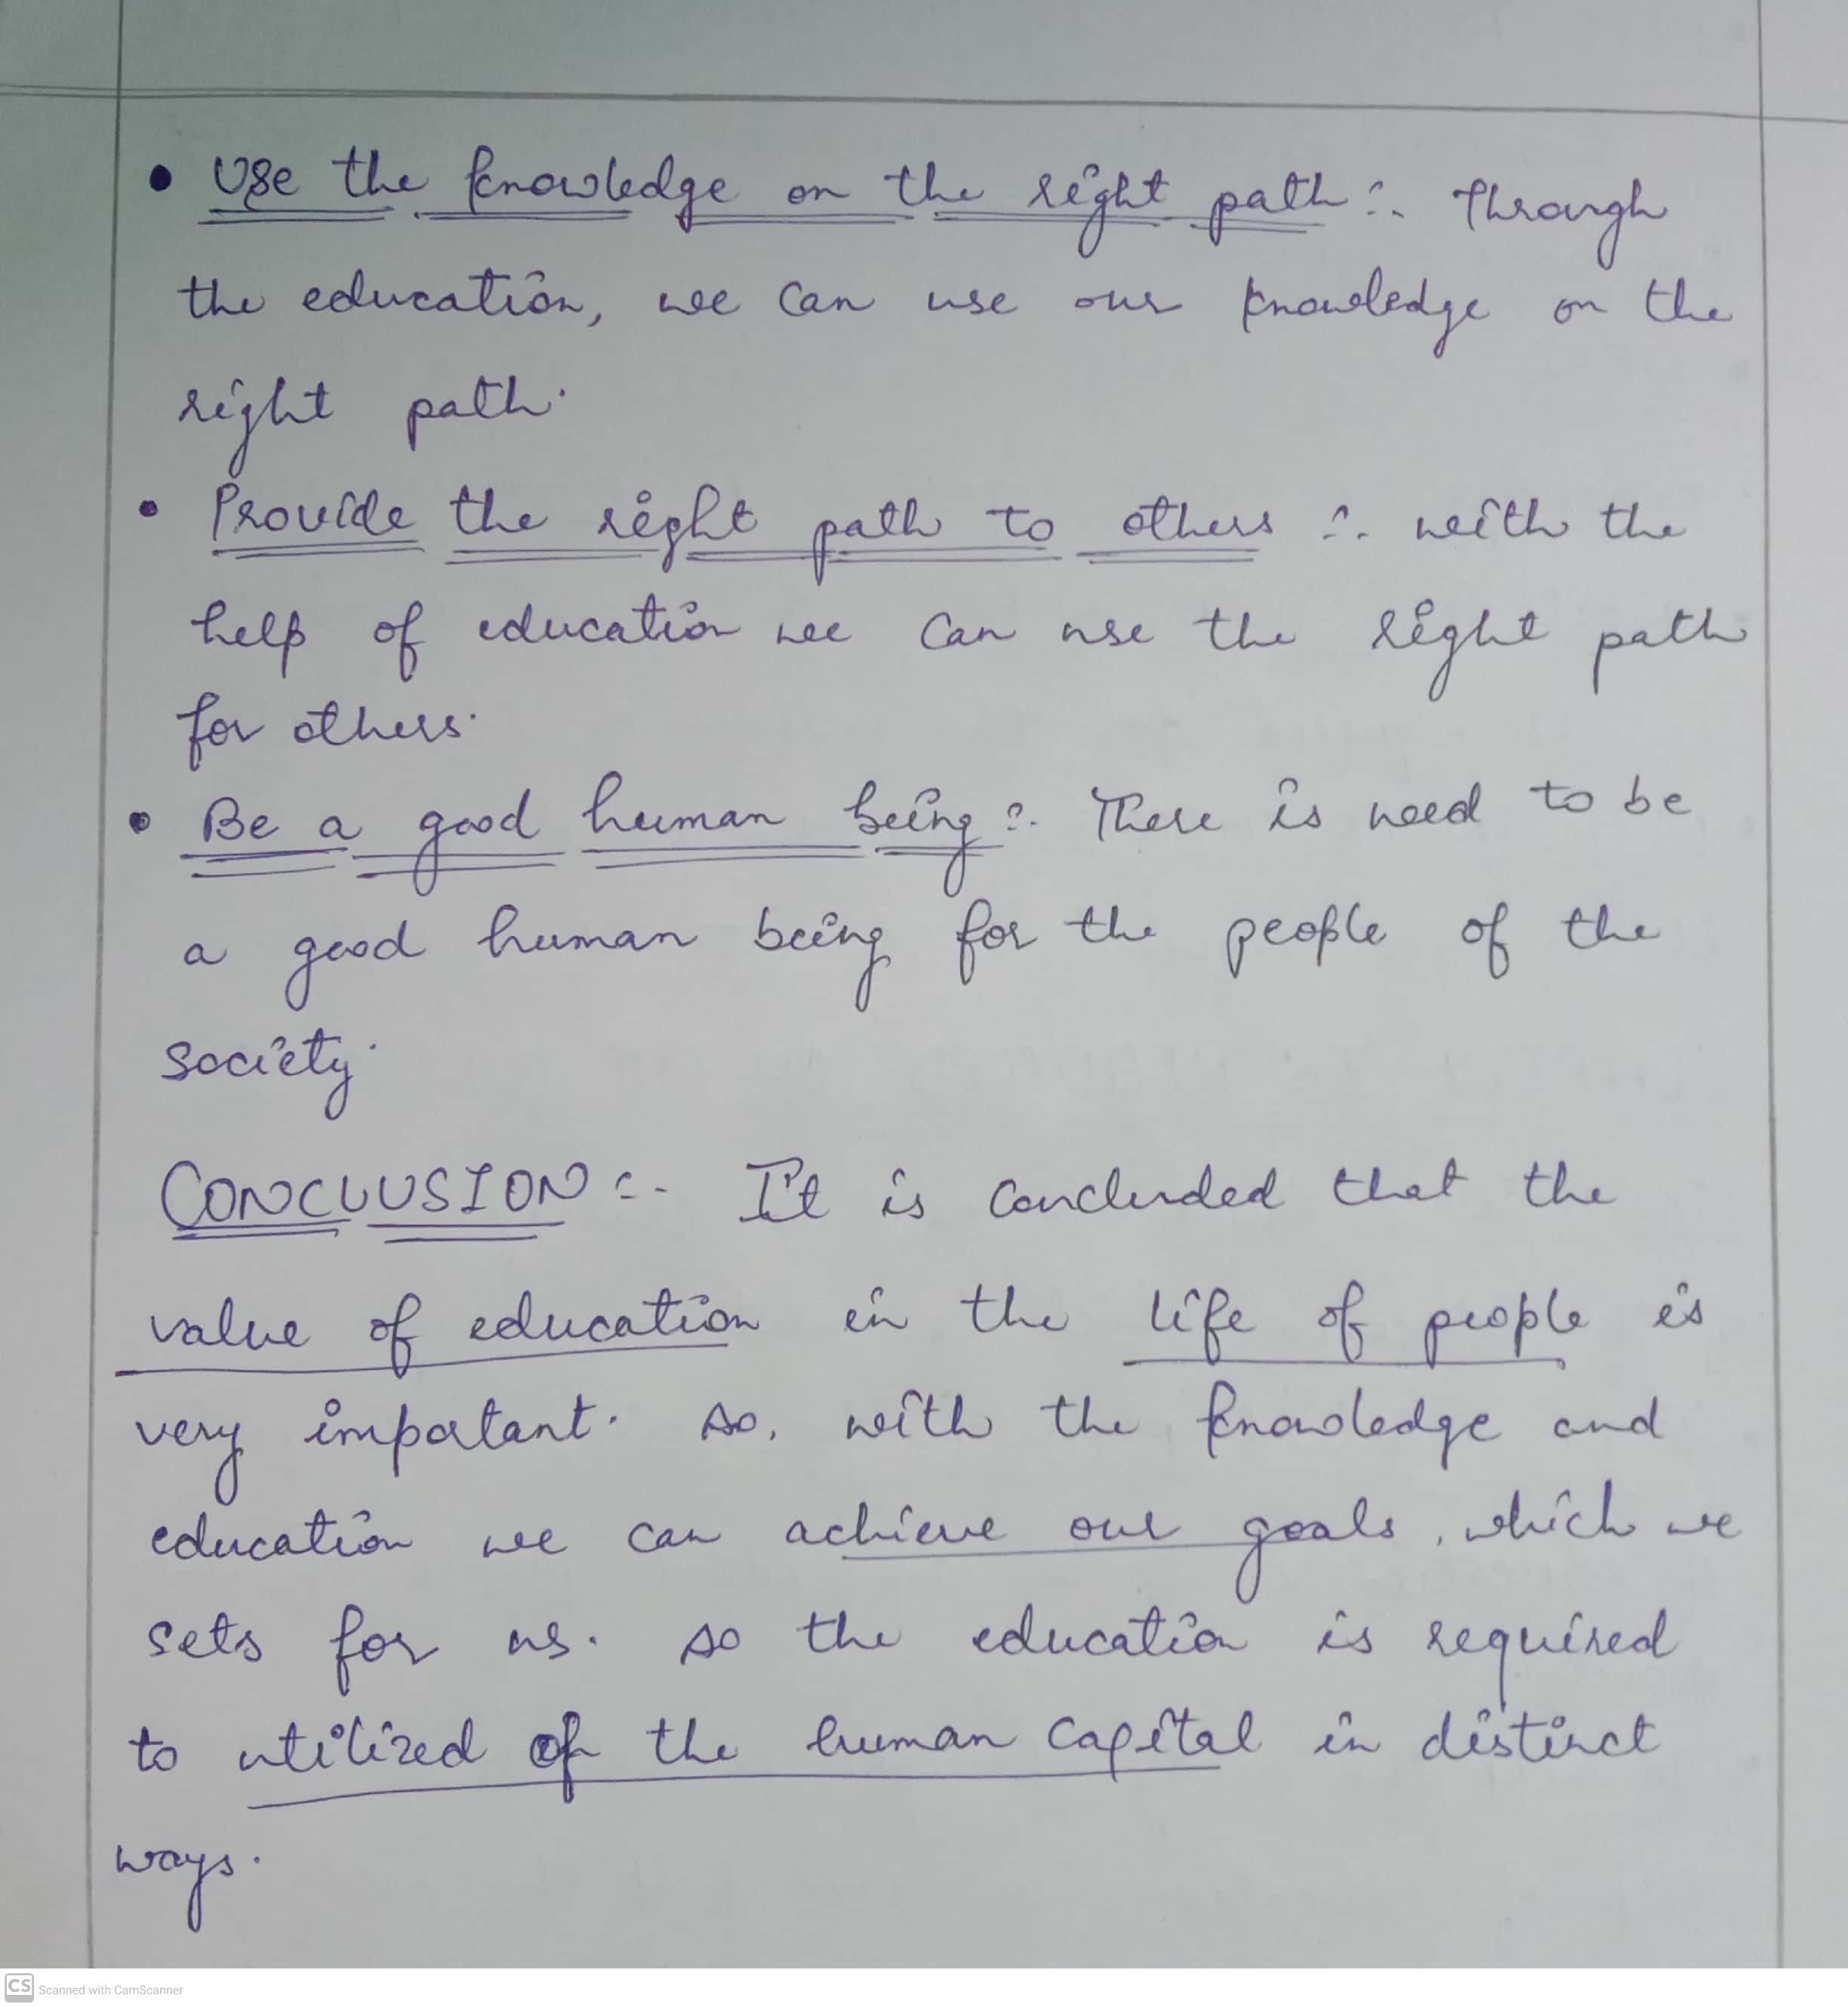 • Use the knowledge on the right path :- Through
the education, we can use our knowledge on the
right path.
• Provide the right path to others :- with the
help of education we can use the right path
for others.
• Be a good human being :- There is need to be
a good human being for the people of the
society.
CONCLUSION :- It is concluded that the
value of education in the life of people is
very important. so, with the knowledge and
education we can achieve our goals, which we
sets for us. so the education is required
to utilized of the human capital in distinct
ways.
CS Scanned with CamScanner